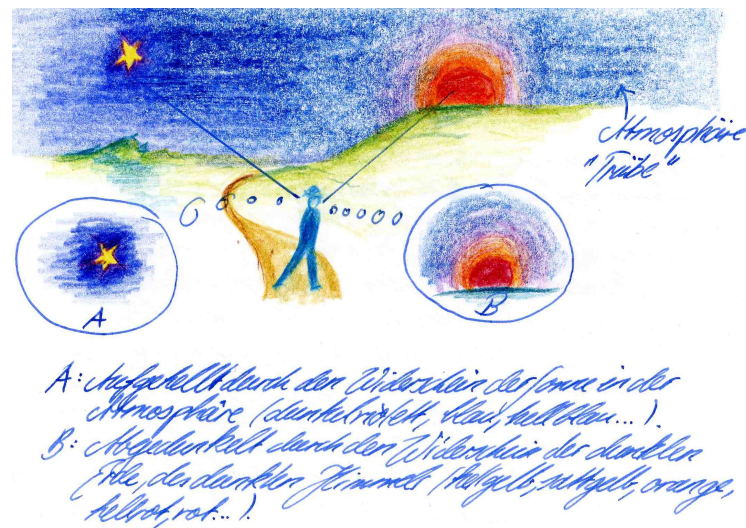 Atmosphäre
"Trübe"
A
B
A: Aufgehellt durch den Widerschein der Sonne in der
Atmosphäre (dunkelviolett, blau, hellblau...).
B: Abgedunkelt durch den Widerschein der dunklen
Erde, des dunklen Himmels (hellgelb, sattgelb, orange,
hellrot, rot...).